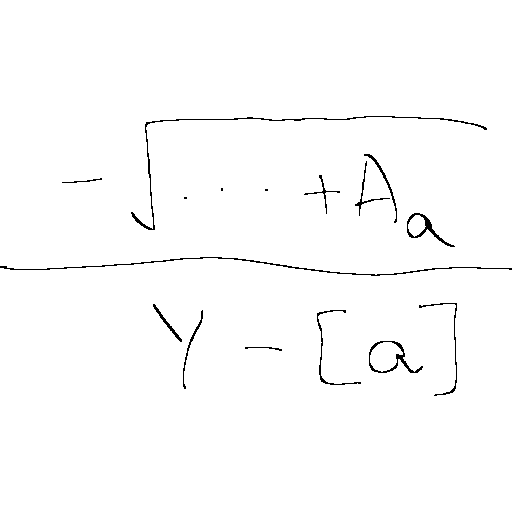 -√(... + A_a)
Y - [a]